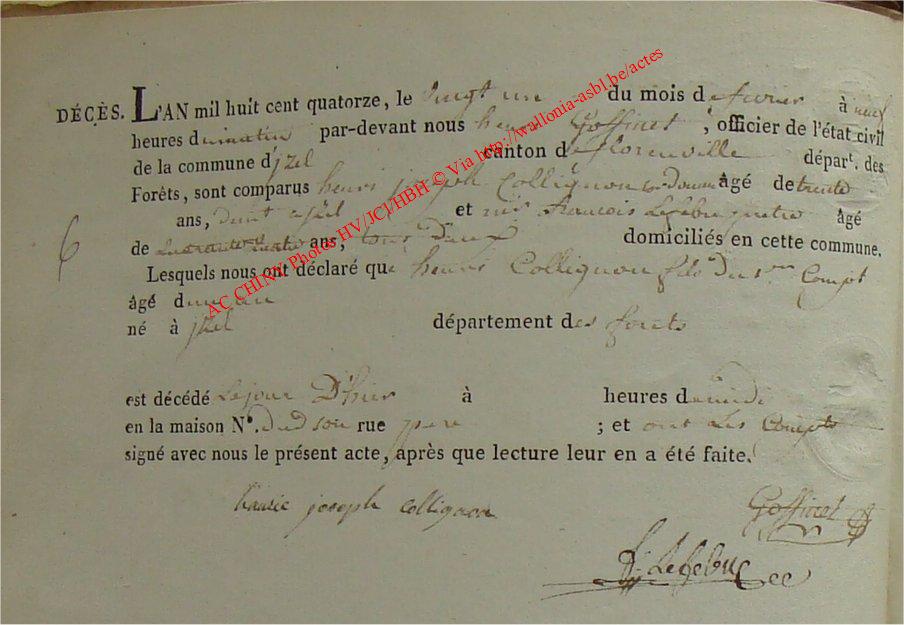 DÉCÈS. L'AN mil huit cent quatorze, le vingt un du mois de fevrier à neuf
heures du matin par-devant nous henri Goffinet, officier de l'état civil
de la commune d'jzel canton de florenville dépar<sup>t</sup>. des
Forêts, sont comparus henri joseph Collignon âgé de trente
ans, d'jzel et francois Lefebure âgé
de ans, tous Deux domiciliés en cette commune.
Lesquels nous ont déclaré que henri Collignon fils Du 1er Compt
âgé d'un an
né à jzel département des forets
est décédé Le jour D'hier à heures de midi
en la maison N°. Dud son rue pere ; et ont Les Compts
signé avec nous le présent acte, après que lecture leur en a été faite.
joseph collignon Goffinet
Lefebure
6
AC CHINY Photos HV/JCJ/HBH © Via http://wallonia-asbl.be/actes